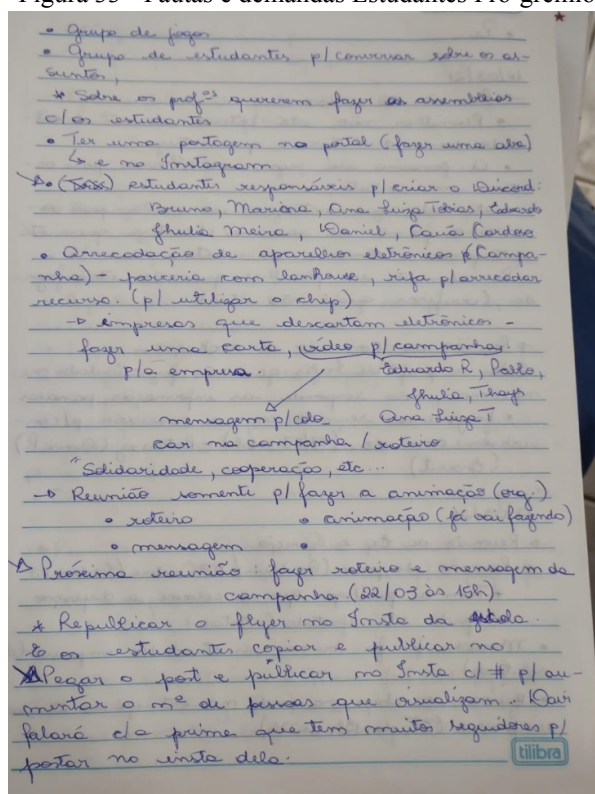 • Grupo de jogos
• Grupo de estudantes p/ conversar sobre os as-
suntos,
* Sobre os prof.es quererem fazer as assembleias
c/os estudantes
• Ter uma postagem no portal (fazer uma aba)
↳ e no Instagram
• estudantes responsáveis p/ criar o Discord:
Bruno, Mariana, Ana Luiza Tobias, Eduardo
Jhulia Meira, Daniel, Cauã Cardoso
• Arrecadação de aparelhos eletrônicos (Campa-
nha) - parceria com lanhouse, rifa p/ arrecadar
recurso. (p/ utilizar o chip)
→ empresas que descartam eletrônicos -
fazer uma carta, vídeo p/ campanha.
p/a empresa. Eduardo R, Pablo,
Jhulia, Thays
mensagem p/ colo Ana Luiza T
car na campanha / roteiro
"Solidaridade, cooperação, etc...
→ Reunião somente p/ fazer a animação (org.)
• roteiro • animação (já vai fazendo)
• mensagem •
Próxima reunião: fazer roteiro e mensagem da
campanha (22/03 às 15h).
* Republicar o flyer no Insta da escola.
E os estudantes copiar e publicar no
Pegar o post e publicar no Insta c/ # p/ au-
mentar o nº de pessoas que visualizam.
falará c/a prima que tem muitos seguidores p/
postar no insta dela.
tilibra